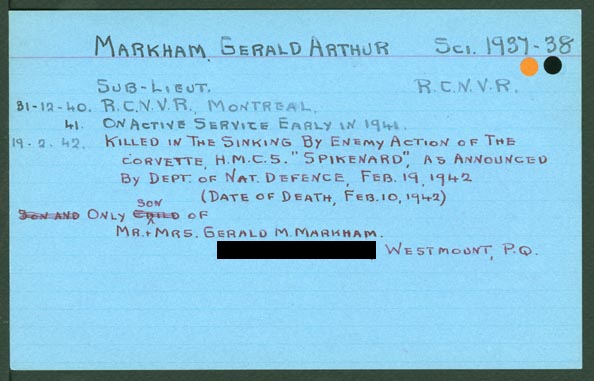 MARKHAM, GERALD ARTHUR SCI. 1937-38
SUB-LIEUT. R.C.N.V.R.
31-12-40. R.C.N.V.R., MONTREAL.
41. ON ACTIVE SERVICE EARLY IN 1941.
19.2.42. KILLED IN THE SINKING BY ENEMY ACTION OF THE
CORVETTE, H.M.C.S. "SPIKENARD", AS ANNOUNCED
BY DEPT. OF NAT. DEFENCE, FEB. 19, 1942
(DATE OF DEATH, FEB. 10, 1942)
SON
SON AND ONLY CHILD OF
MR. & MRS. GERALD M. MARKHAM.
WESTMOUNT, P.Q.